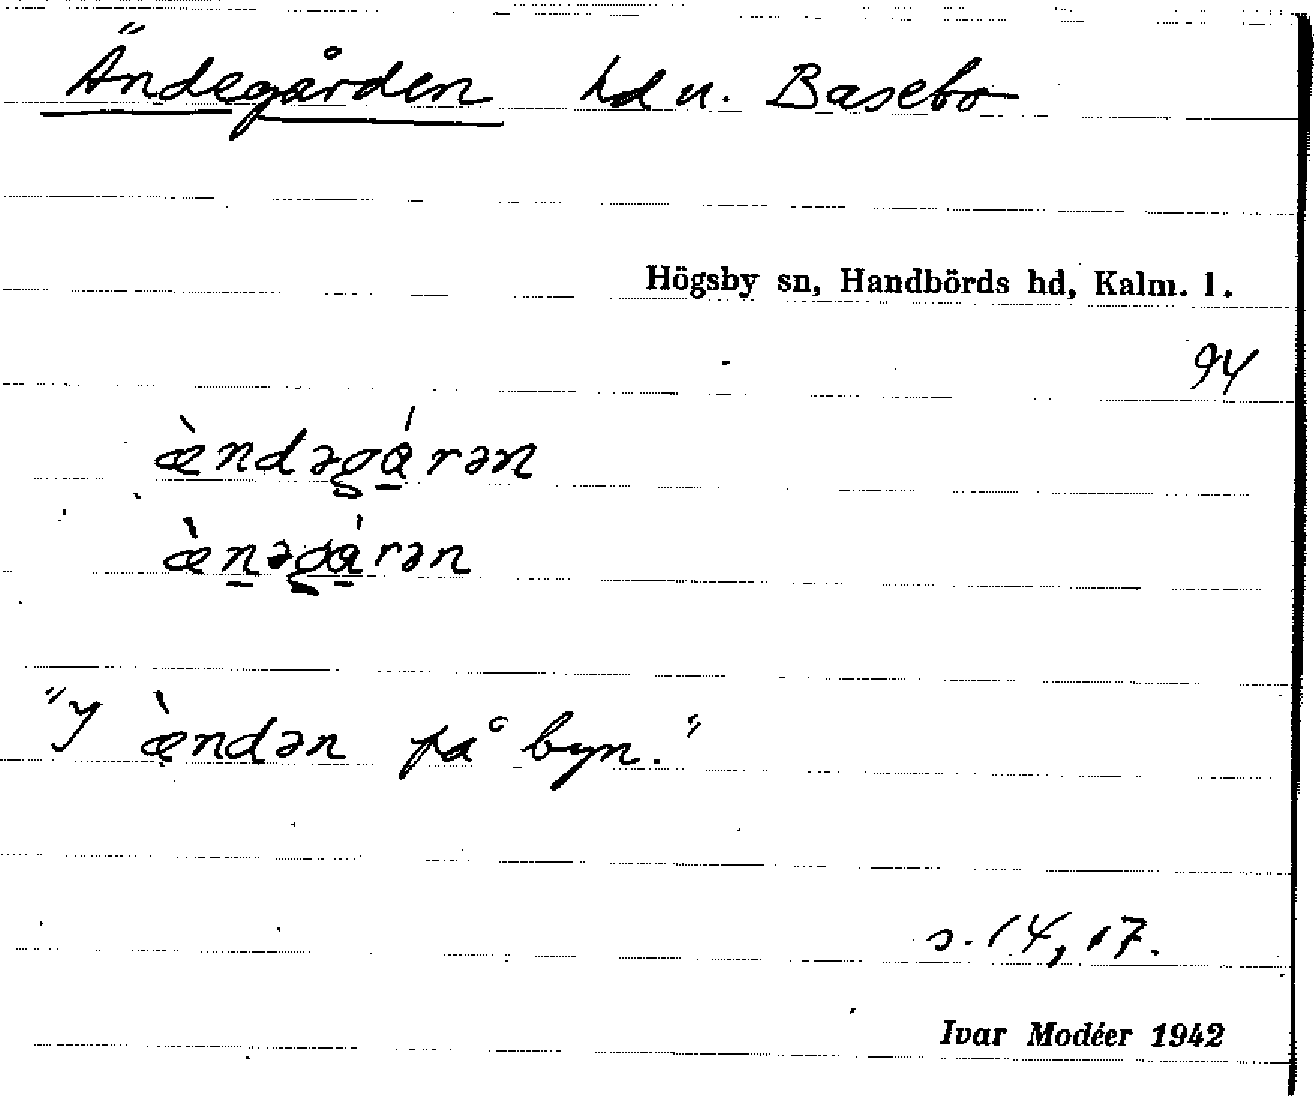 Ändegården hd n. Basebo
Högsby sn, Handbörds hd, Kalm. l.
94
æ̀ndəgá̱rən
æ̀ṉəgá̱rən
"I æ̀ndən på byn."
s. 14, 17.
Ivar Modéer 1942